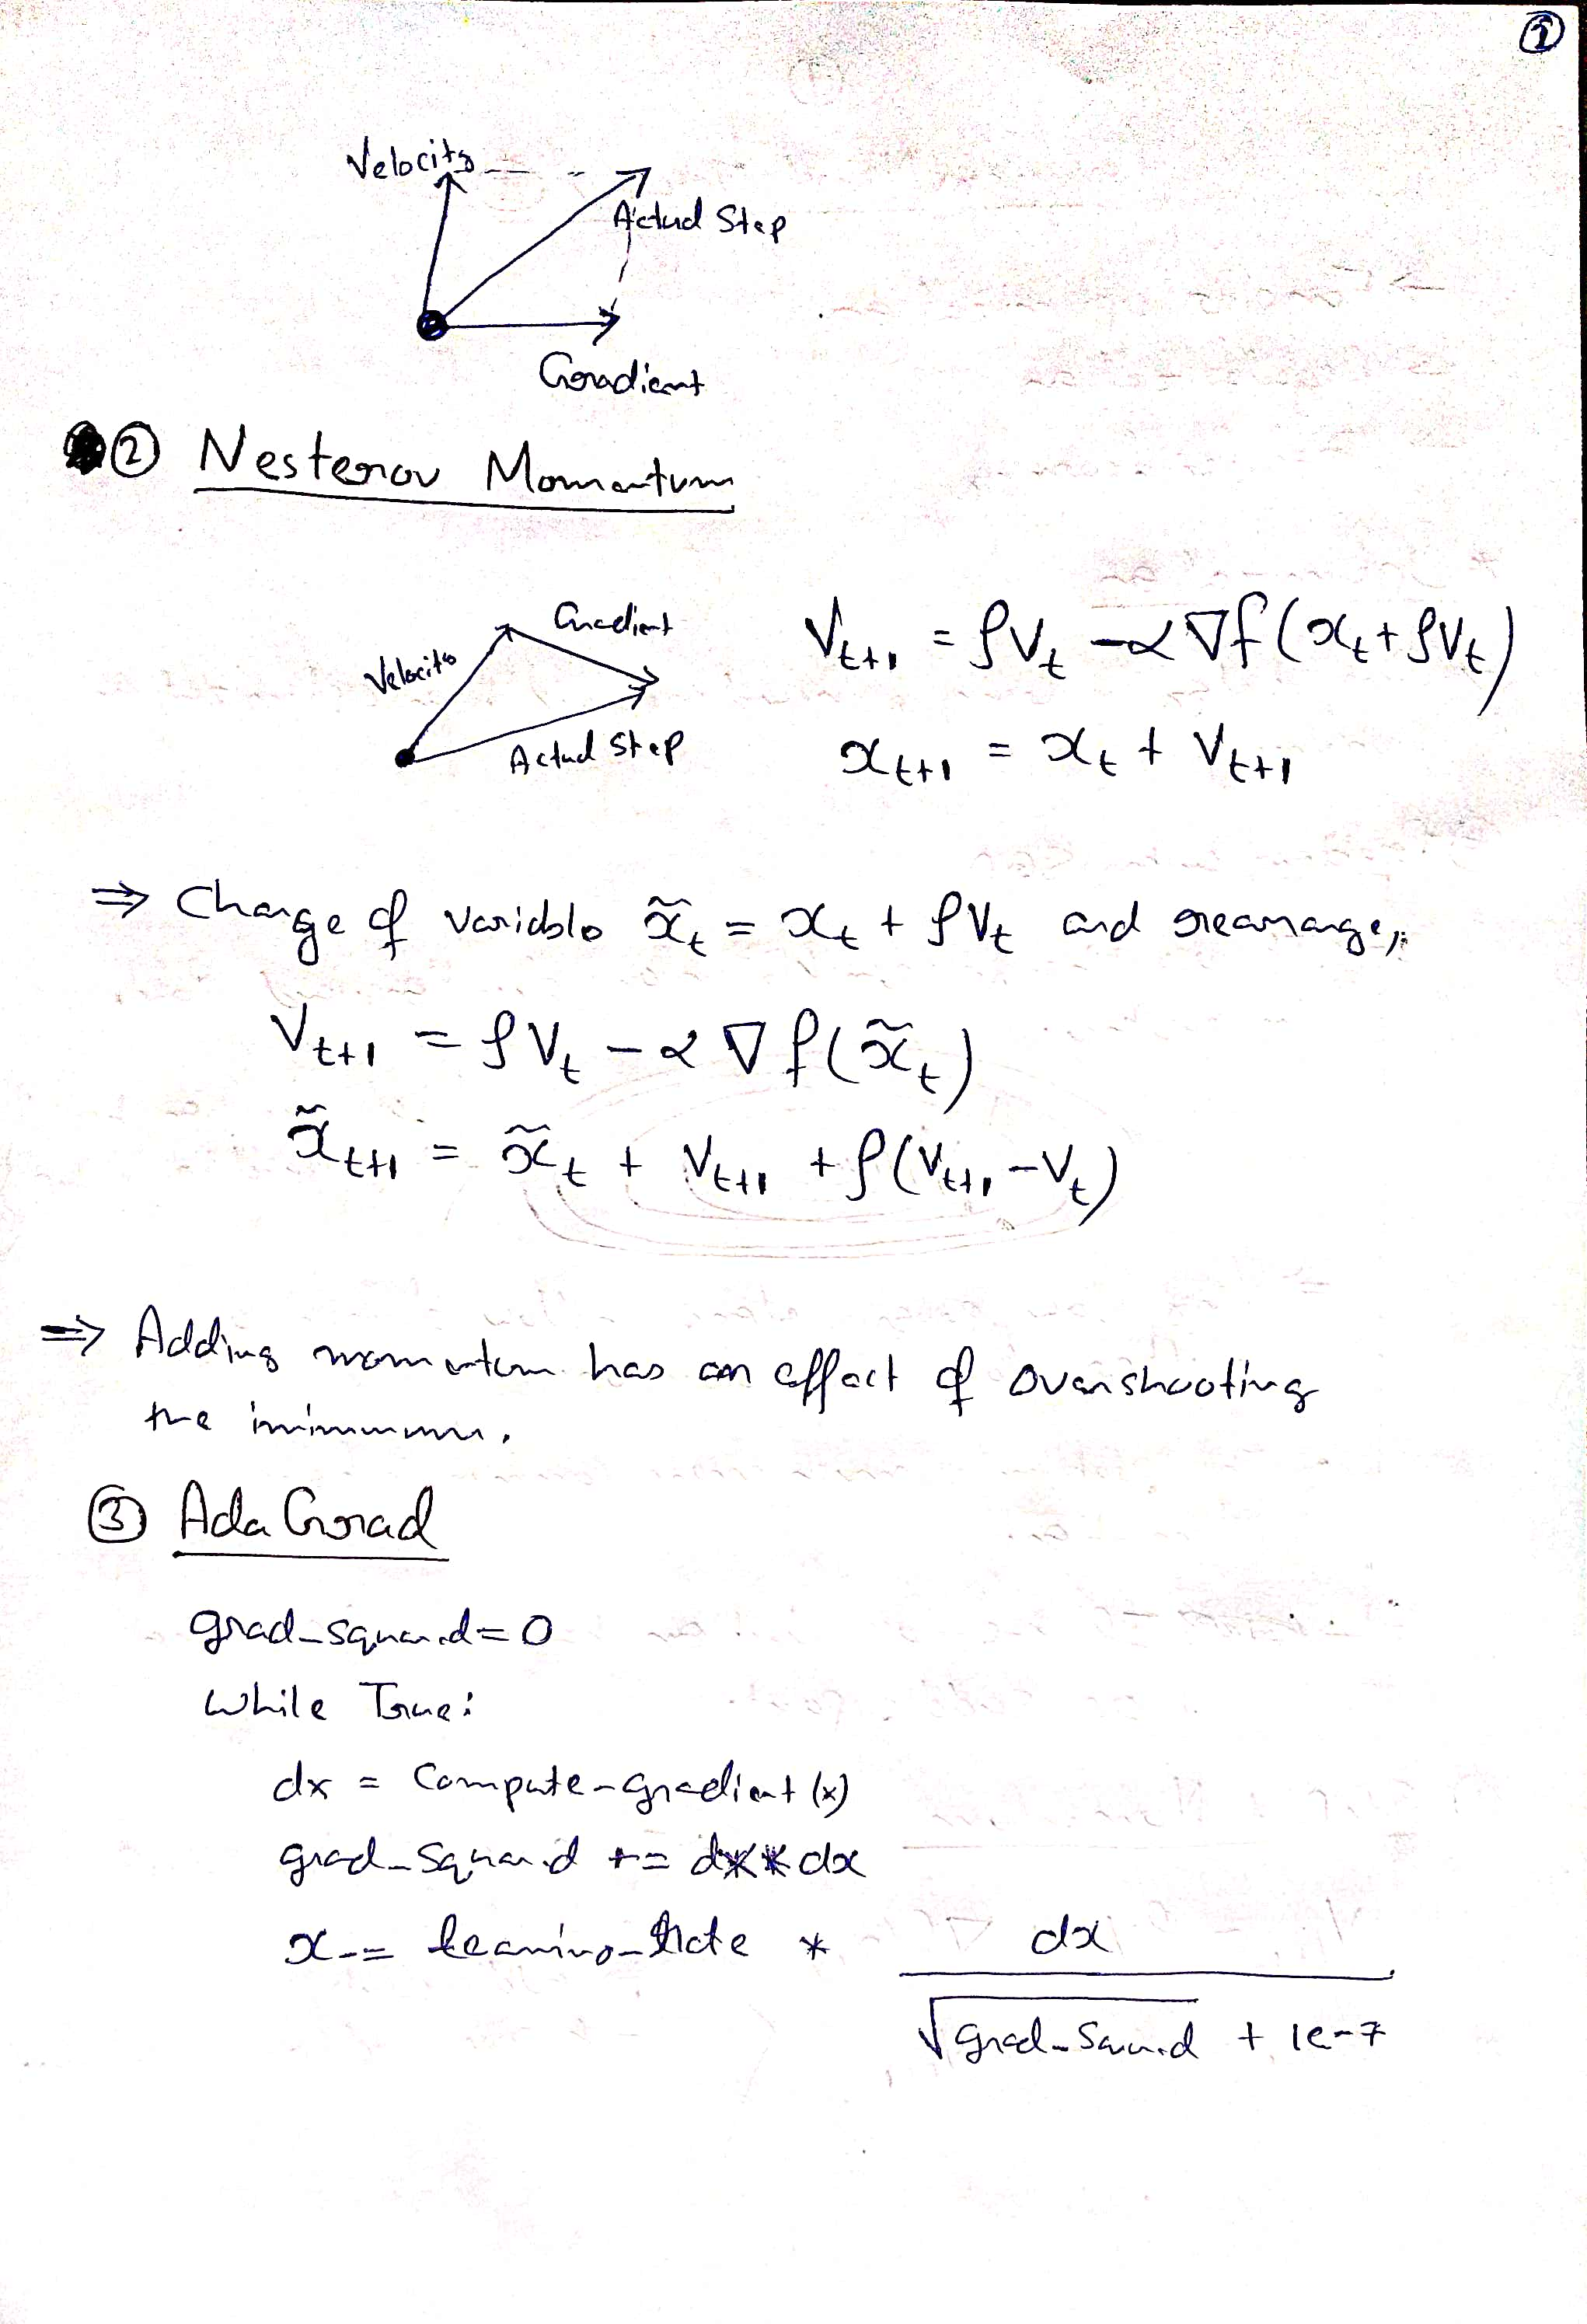 ①
Velocity
Actual Step
Gradient
② Nesterov Momentum
Gradient
Velocity
Actual Step
V_{t+1} = ρV_t - α∇f(x_t + ρV_t)
x_{t+1} = x_t + V_{t+1}
⇒ Change of variable x̃_t = x_t + ρV_t and rearrange,
V_{t+1} = ρV_t - α∇f(x̃_t)
x̃_{t+1} = x̃_t + V_{t+1} + ρ(V_{t+1} - V_t)
⇒ Adding momentum has an effect of overshooting
the minimum.
③ AdaGrad
grad_squared = 0
While True:
dx = Compute_gradient(x)
grad_squared += dx*dx
x -= learning_rate * dx / √grad_squared + 1e-7